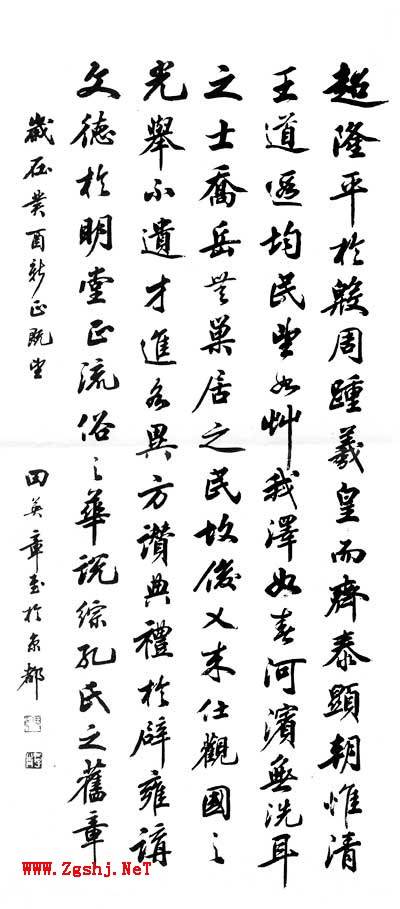 超隆平於殷周踵羲皇而齊泰顯朝惟清
王道遐均民望如艸我澤如春河濱無洗耳
之士喬岳無巢居之民故俊乂来仕觀國之
光舉不遺才進各異方讚典禮於辟雍講
文德於明堂正流俗之華說綜孔氏之舊章
歲在癸酉新正既望 田英章書於京都
www.Zgshj.NeT